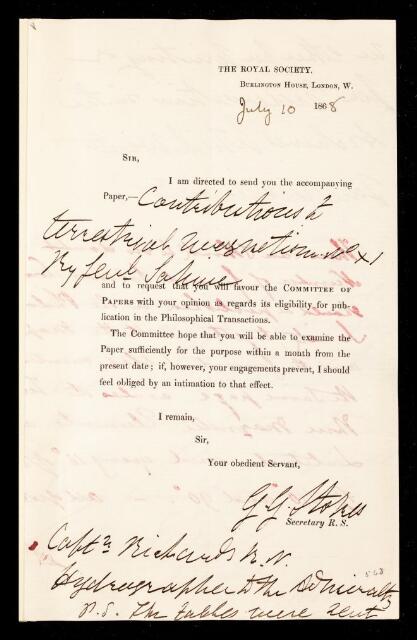 THE ROYAL SOCIETY.
BURLINGTON HOUSE, LONDON, W.
July 10 1868
SIR,
I am directed to send you the accompanying
Paper,— Contributions to
terrestrial Magnetism No XI
By Genl Sabine
and to request that you will favour the COMMITTEE OF
PAPERS with your opinion as regards its eligibility for pub-
lication in the Philosophical Transactions.
The Committee hope that you will be able to examine the
Paper sufficiently for the purpose within a month from the
present date; if, however, your engagements prevent, I should
feel obliged by an intimation to that effect.
I remain,
Sir,
Your obedient Servant,
G G Stokes
Secretary R. S.
Captn Richards R.N.
Hydrographer to the Admiralty
P.S. The tables were sent